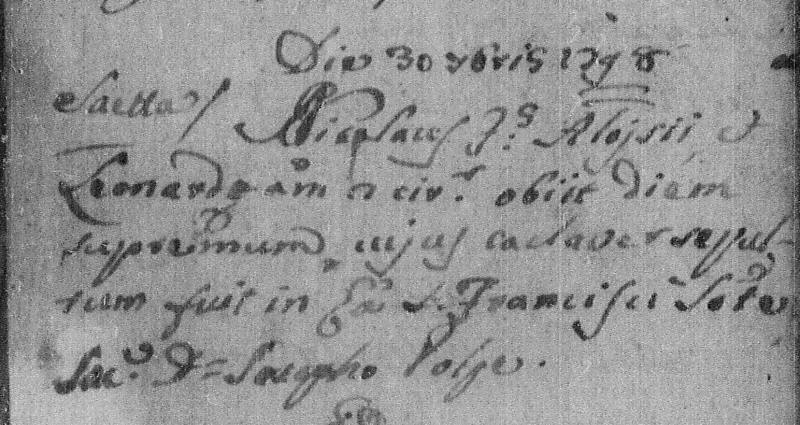 Die 30 xbris 1798
Saetta Nicolaus f.s Aloisii e
Leonarda an 2 cir.r obiit diem
supremum cujus cadaver sepul-
tum fuit in Ec.a S. Francisci
Sac.e D= Josepho